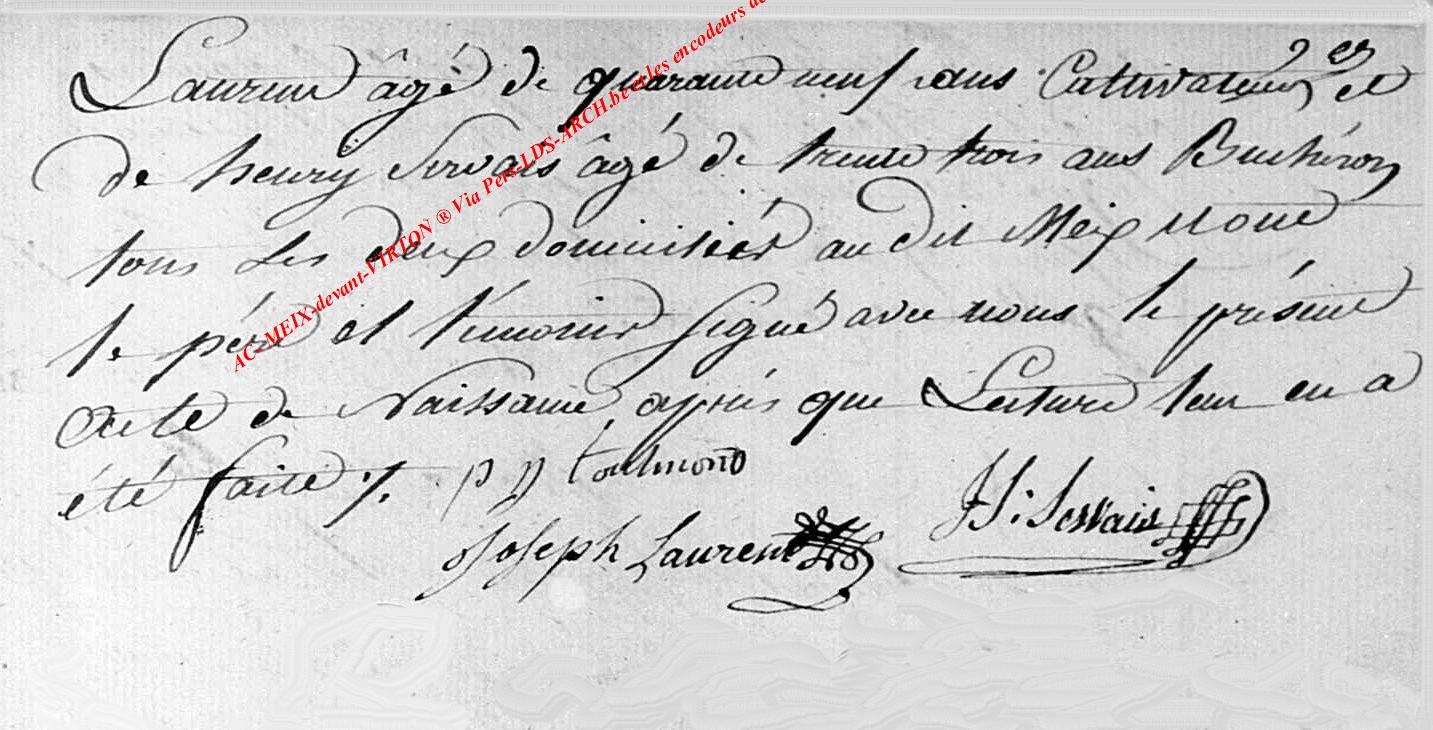 Laurent âgé de quarante neuf ans Cultivateur et
de henry Servais âgé de trente trois ans Bucheron
tous les deux domiciliés au dit Meix
le père et témoins signé avec nous le présent
acte de Naissance, après que Lecture leur en a
été faite ./.
p toulmond
Joseph Laurent
H Servais
AC-MEIX-devant-VIRTON ® Via Pers.LDS-ARCH.be et les encodeurs de